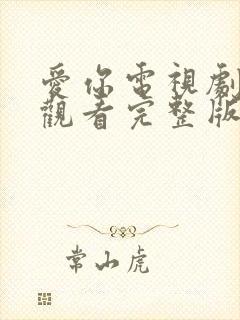 愛你電視劇
觀看完整版
常山虎